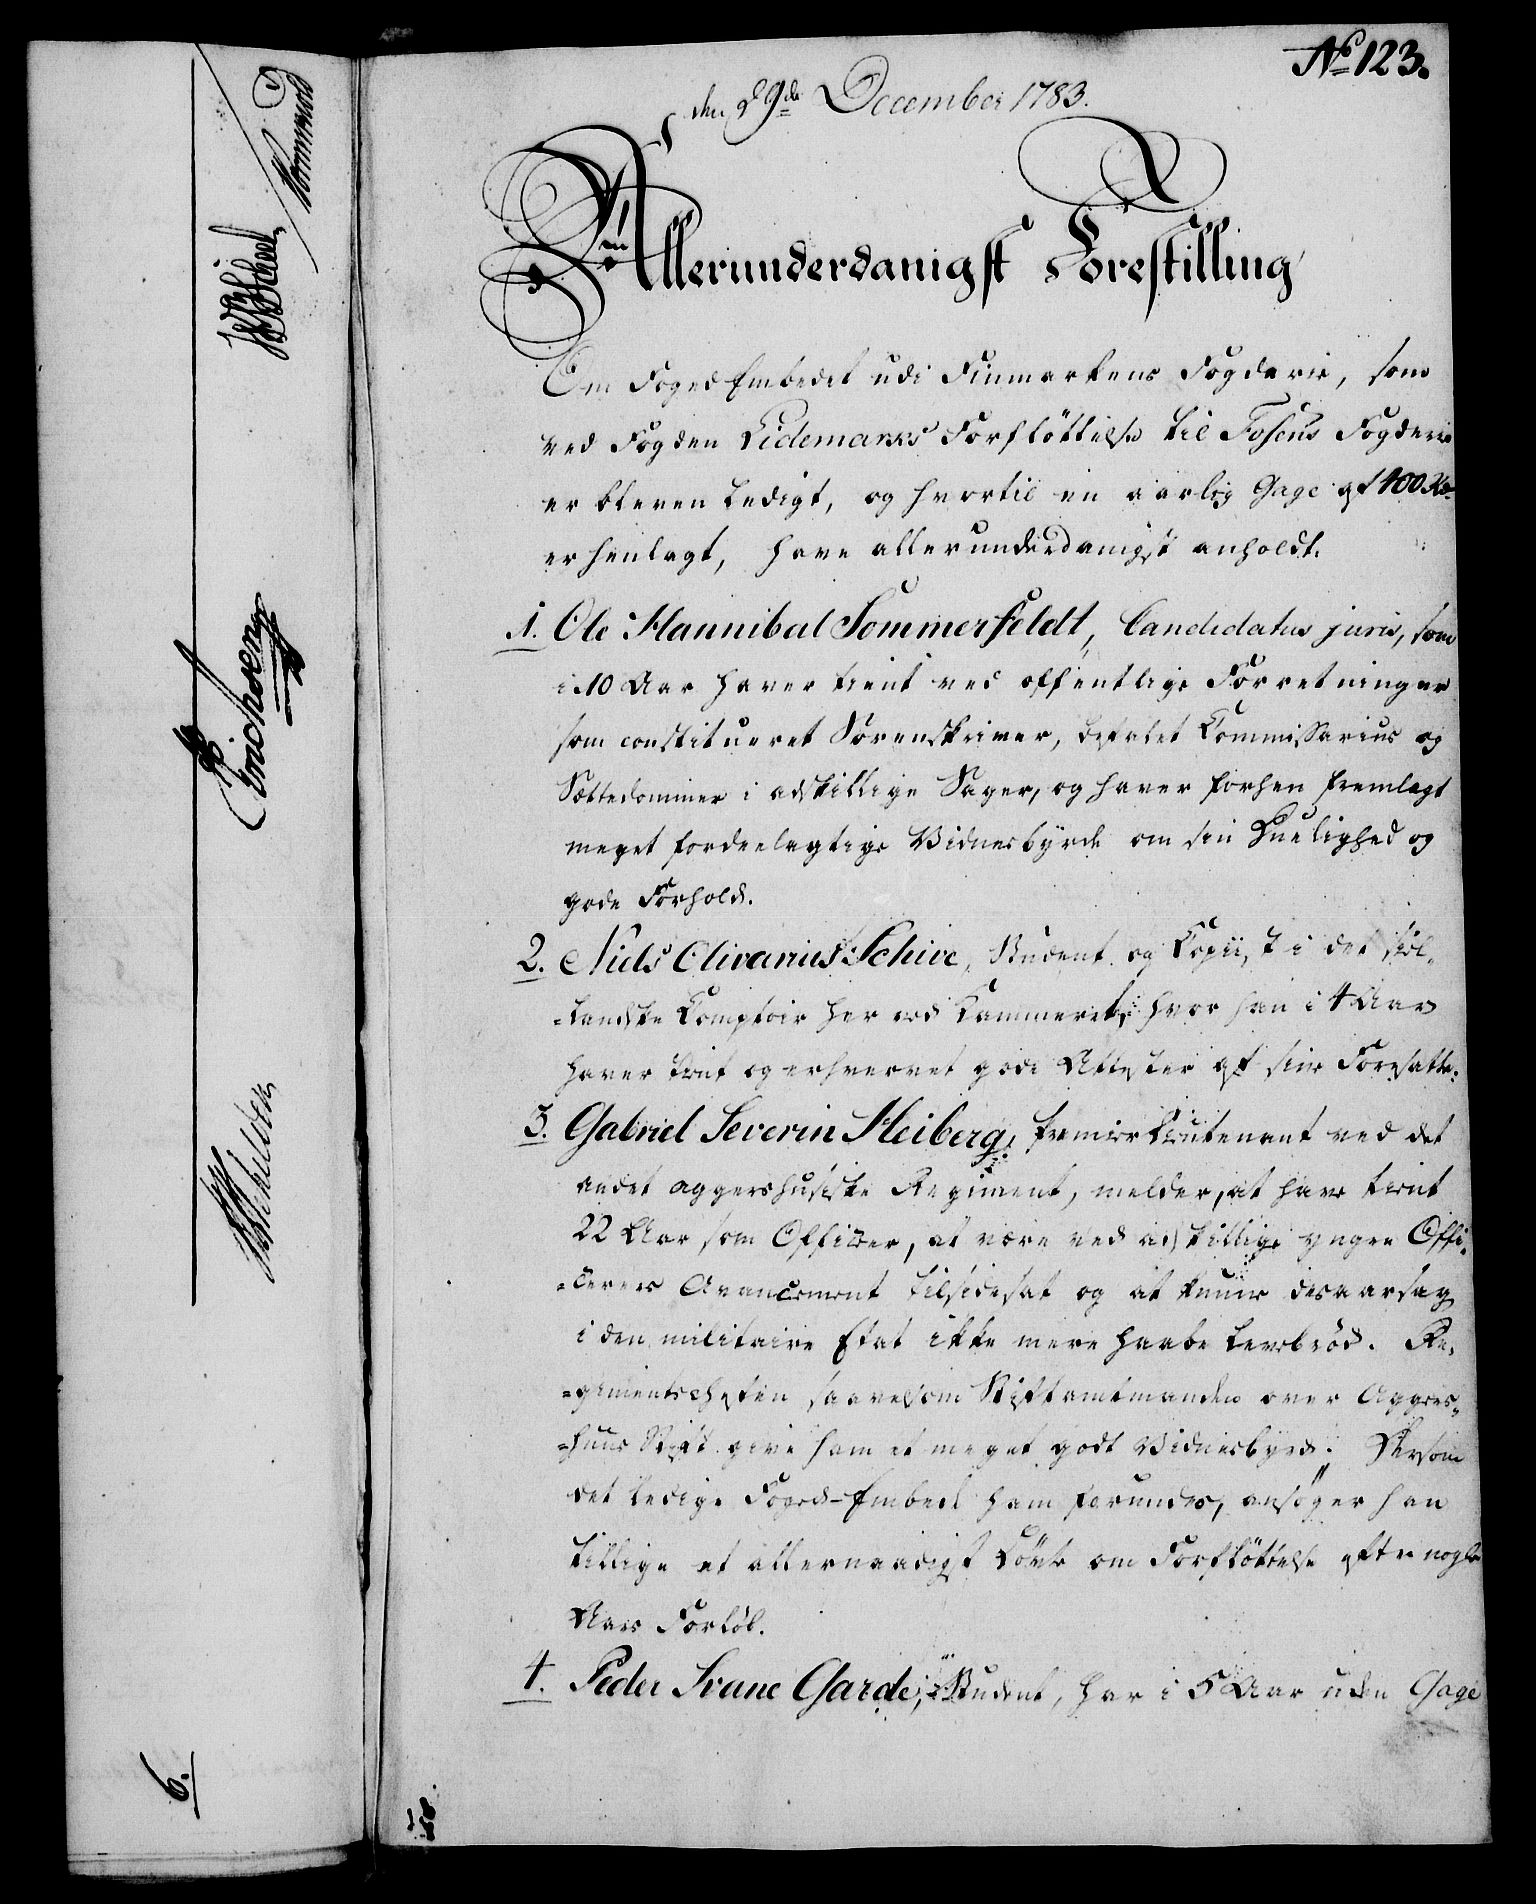 No 123.
den 29de December 1783.
Allerunderdanigst Forestilling
Om Foged Embedet udi Finmarkens Fogderie, som
ved Fogden Lidemarks Forflöttelse til Fosens Fogderie
er bleven ledigt, og hvortil en aarlig Gage af 400 Rd
er henlagt, have allerunderdanigst anholdt.
1. Ole Hannibal Sommerfeldt, Candidatus juris, som
i 10 Aar haver tient ved offentlige Forretninger
som constitueret Sorenskriver, befalet Commissarius og
Sættedommer i adskillige Sager, og haver forhen fremlagt
meget fordeelagtige Vidnesbyrde om sin Duelighed og
gode Forhold.
2. Niels Olivarius Schive, Student og Copiist i det
-landske Comptoir her ved Kammeret, hvor han i 4 Aar
haver tient og erhvervet gode Attester af sine Foresatte.
3. Gabriel Severin Heiberg, Premier Lieutenant ved det
andet aggershusiske Regiment, melder, at have tient
22 Aar som Officer, at være ved adskillige yngre Offi-
-cerers Avancement tilsidesat og at kunne desaarsag
i den militaire Etat ikke mere haabe Levebröd. Re-
-gimentschefen saavelsom Stiftamtmanden over Aggers-
-huus Stift give ham et meget godt Vidnesbyrd. Dersom
det ledige Foged-Embede ham forundes, ansöger han
tillige et allernaadigst Löfte om Forflöttelse efter nogle
Aars Forlöb.
4. Peder Svane Garde, Student, har i 5 Aar uden Gage
Erichsen
6.